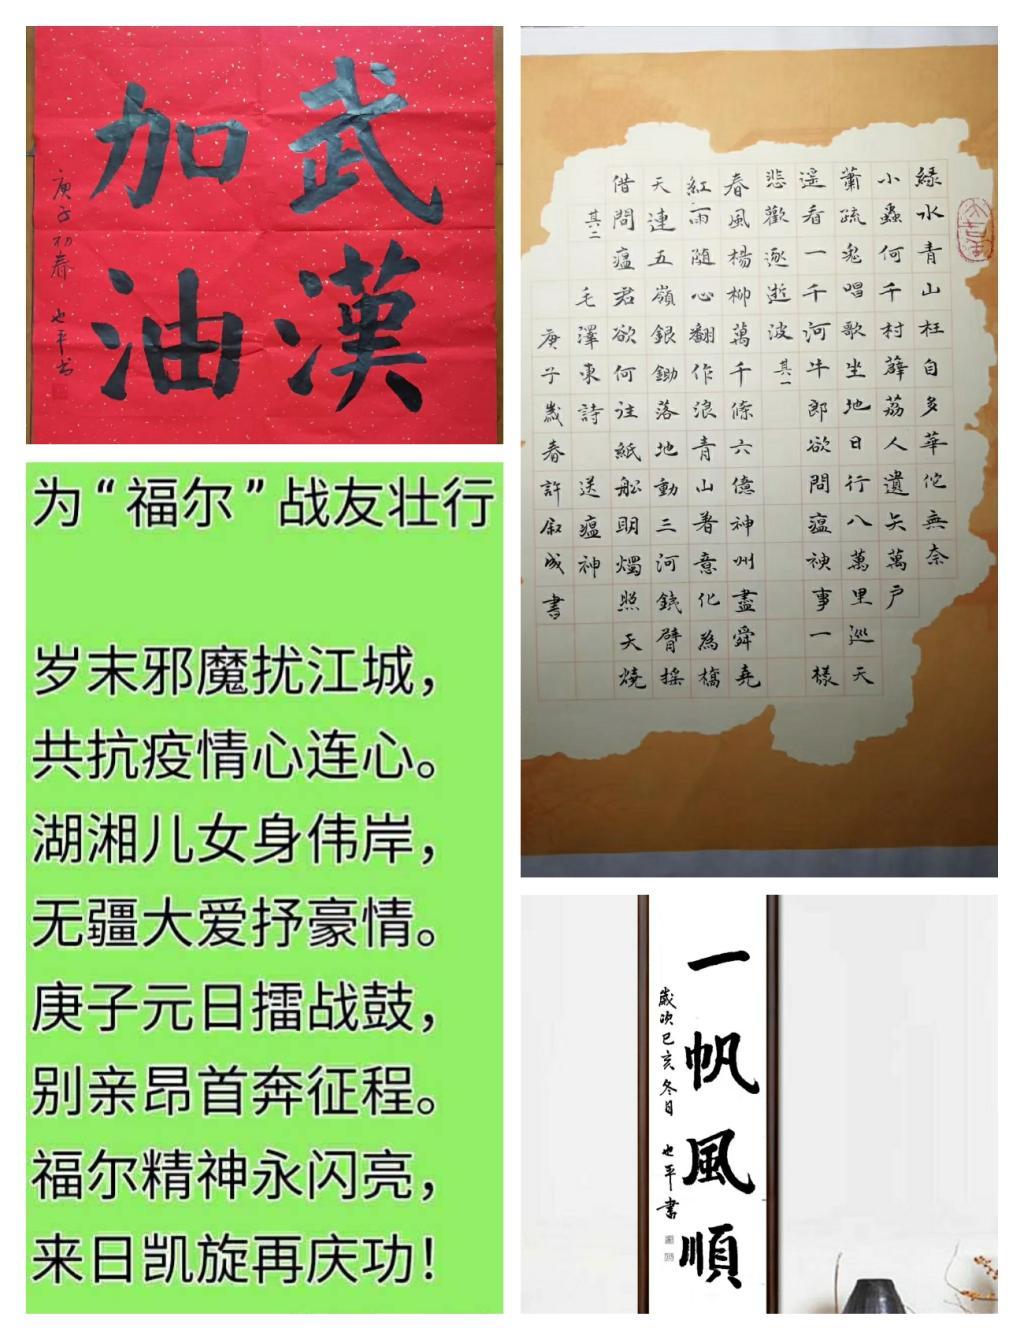 武漢
加油
庚子初春 也平书
緑水青山枉自多華佗無奈
小蟲何千村薜荔人遺矢萬户
蕭疏鬼唱歌坐地日行八萬里巡天
遥看一千河牛郎欲問瘟神事一樣
悲歡逐逝波 其一
春風楊柳萬千條六億神州盡舜堯
紅雨隨心翻作浪青山著意化為橋
天連五嶺銀鋤落地動三河鐵臂摇
借問瘟君欲何往紙船明燭照天燒
其二
毛澤東詩 送瘟神
庚子歲春許叙成書
为“福尔”战友壮行
岁末邪魔扰江城，
共抗疫情心连心。
湖湘儿女身伟岸，
无疆大爱抒豪情。
庚子元日擂战鼓，
别亲昂首奔征程。
福尔精神永闪亮，
来日凯旋再庆功！
一帆風順
歲次己亥冬日 也平書